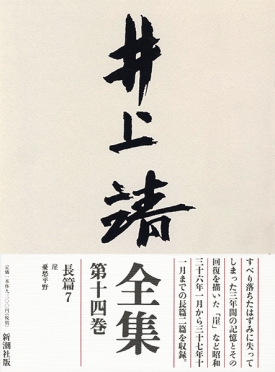 井上靖
全集
第十四巻
長篇7
崖
憂愁平野
すべり落ちたはずみに失って
しまった三年間の記憶とその
回復を描いた「崖」など昭和
三十六年一月から三十七年十
一月までの長篇二篇を収録。
新潮社版